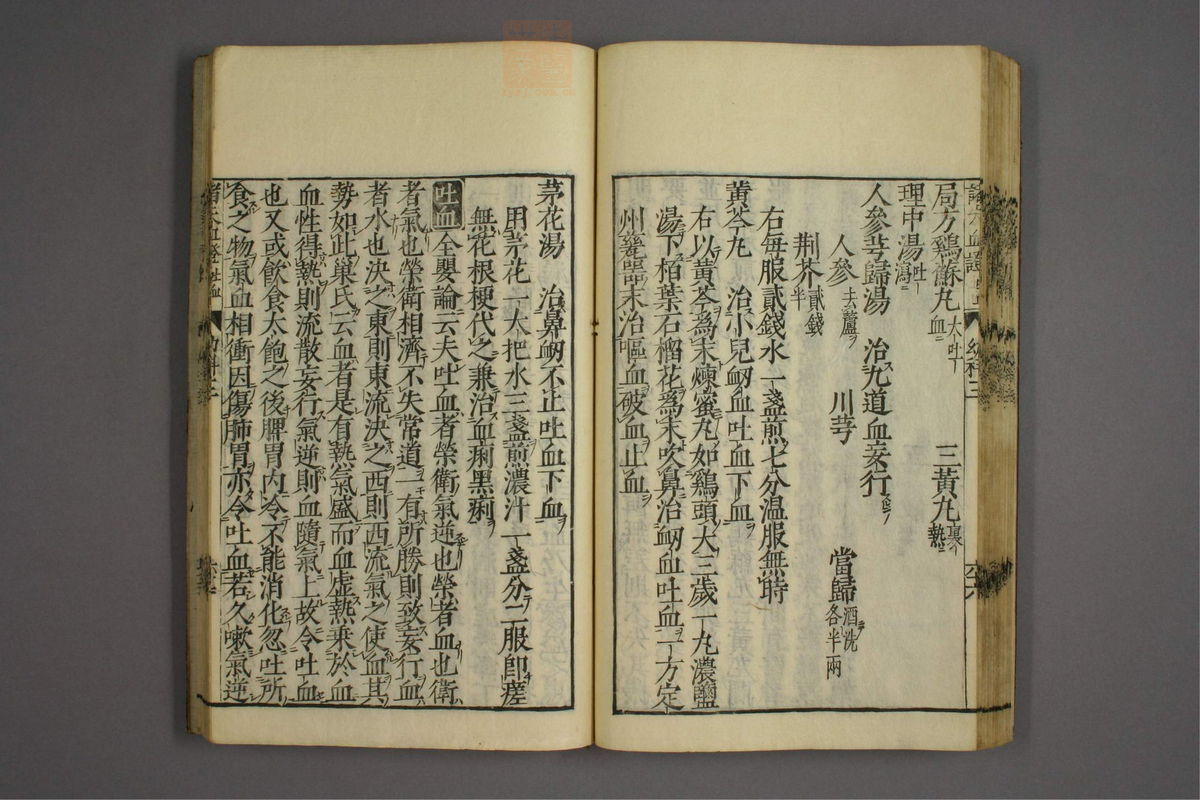 局方鷄酥丸 大吐血 三黄丸 裏熱
理中湯 吐瀉
人參芎歸湯 治九道血妄行
人參 去蘆 川芎 當歸 酒洗各半兩
荆芥 貳錢半
右每服貳錢水一盞煎七分温服無時
黄芩丸 治小兒衂血吐血下血
右以黄芩爲末煉蜜丸如鷄頭大三歲一丸濃鹽
湯下栢葉石榴花爲末吹鼻治衂血吐血一方定
州甆器末治嘔血破血止血
茅花湯 治鼻衂不止吐血下血
用茅花一大把水三盞煎濃汁一盞分二服卽瘥
無花根梗代之兼治血痢黑痢
吐血 全嬰論云夫吐血者榮衛氣逆也榮者血也衛
者氣也榮衛相濟不失常道一有所勝則致妄行血
者水也決之東則東流決之西則西流氣之使血其
勢如此巢氏云血者是有熱氣盛而血虛熱乗於血
血性得熱則流散妄行氣逆則血隨氣上故令吐血
也又或飲食太飽之後脾胃内冷不能消化忽吐所
食之物氣血相衝因傷肺胃亦令吐血若久嗽氣逆